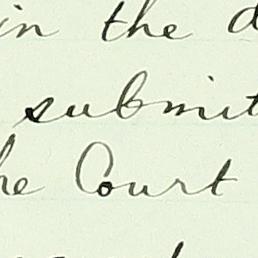 in the d
submit
he Court